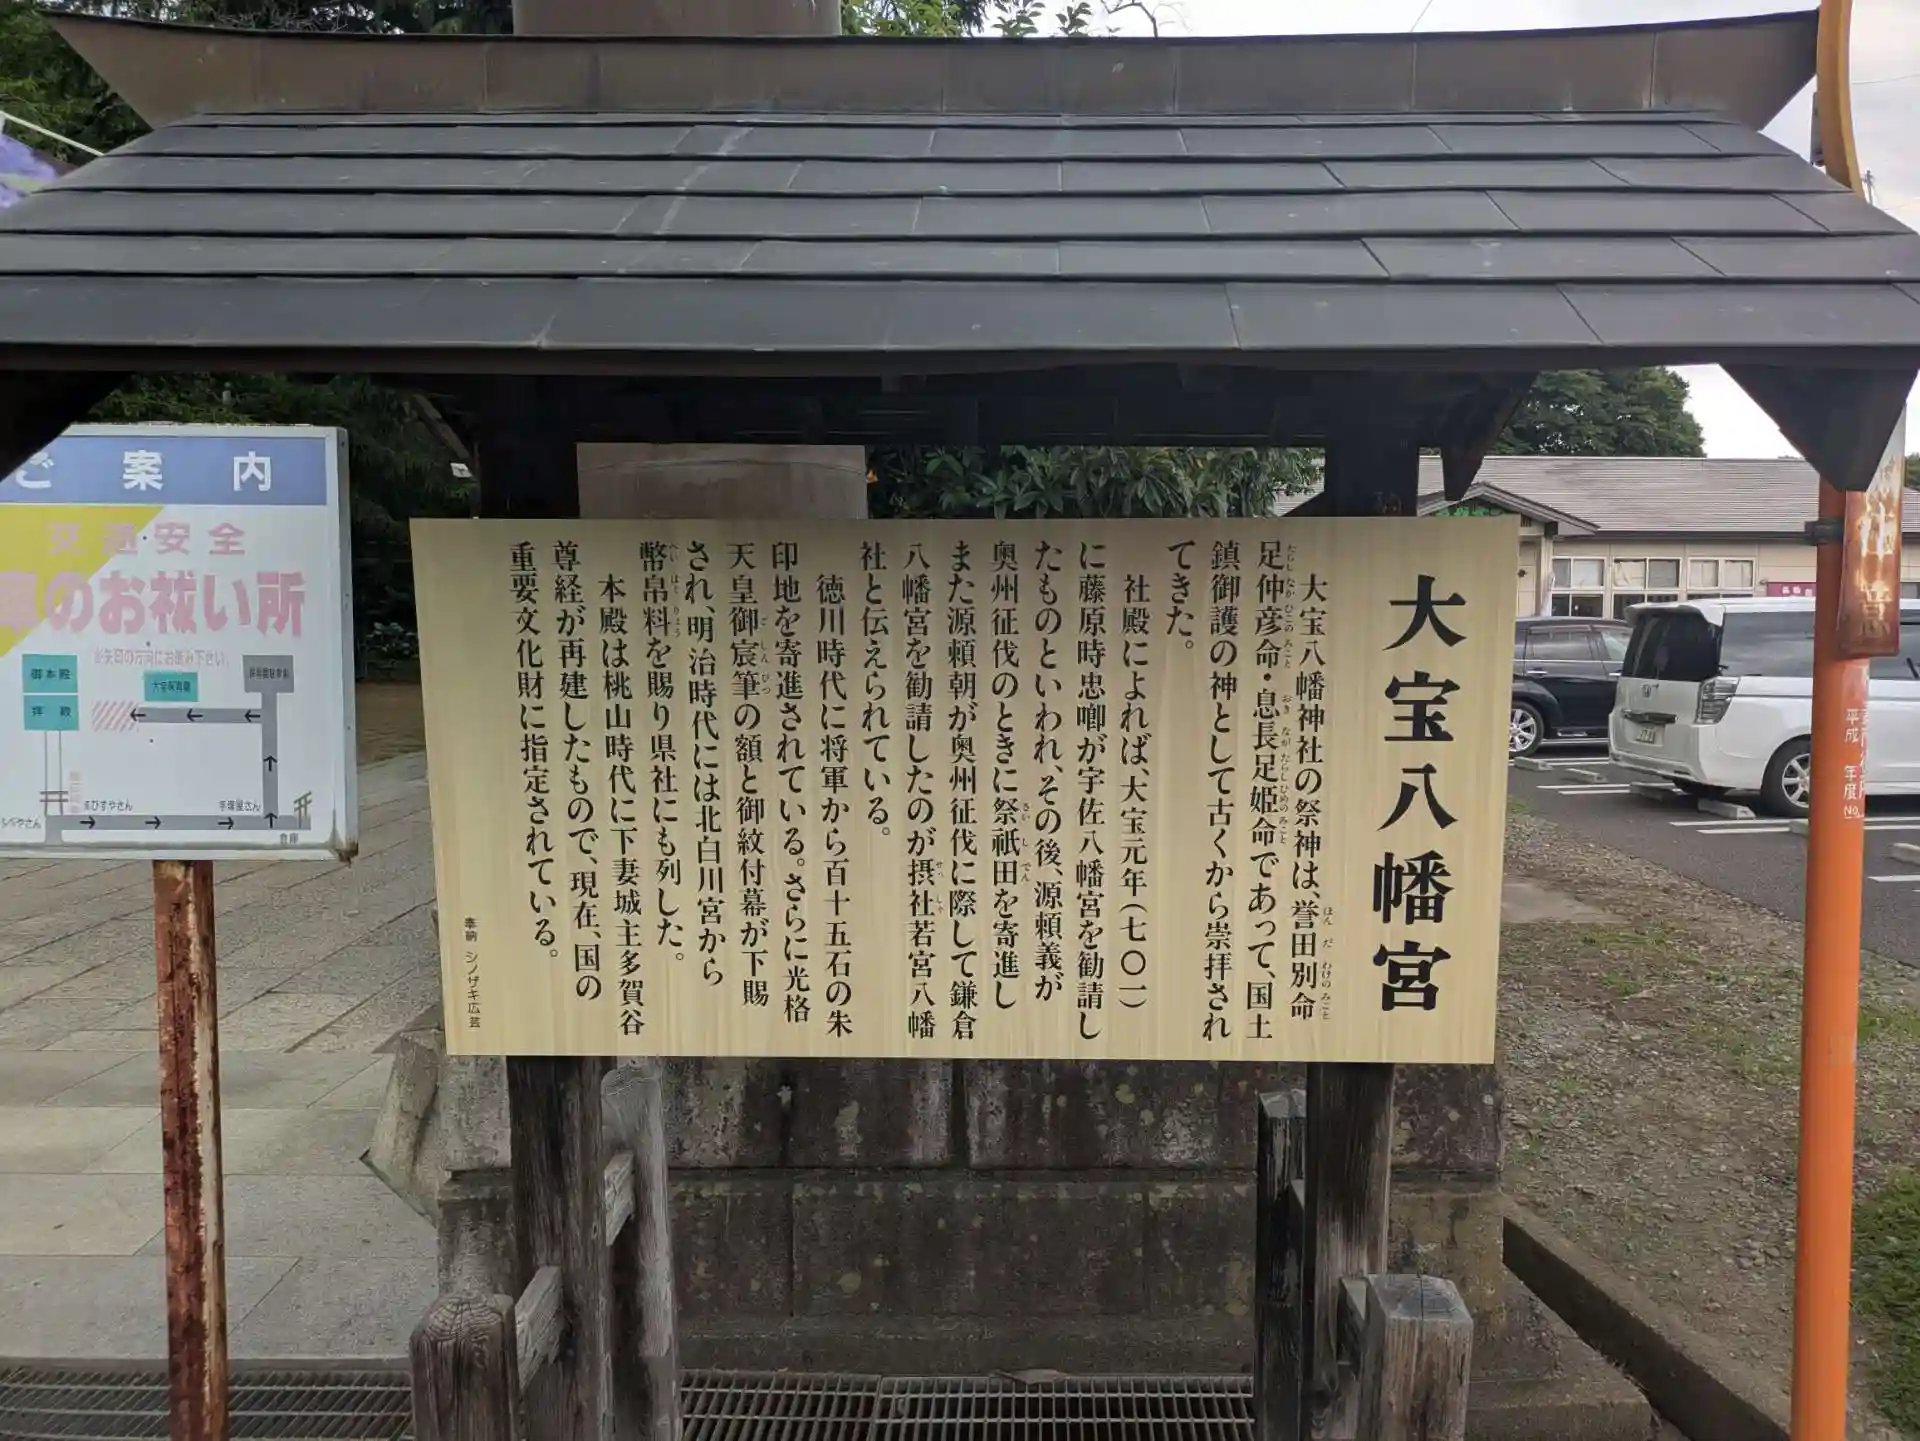 大宝八幡宮
大宝八幡神社の祭神は、誉田別命
足仲彦命・息長足姫命であって、国土
鎮御護の神として古くから崇拝され
てきた。
社殿によれば、大宝元年(七〇一)
に藤原時忠啣が宇佐八幡宮を勧請し
たものといわれ、その後、源頼義が
奥州征伐のときに祭祇田を寄進し
また源頼朝が奥州征伐に際して鎌倉
八幡宮を勧請したのが摂社若宮八幡
社と伝えられている。
徳川時代に将軍から百十五石の朱
印地を寄進されている。さらに光格
天皇御宸筆の額と御紋付幕が下賜
され、明治時代には北白川宮から
幣帛料を賜り県社にも列した。
本殿は桃山時代に下妻城主多賀谷
尊経が再建したもので、現在、国の
重要文化財に指定されている。
奉納 シノザキ広芸
ご案内
交通安全
車のお祓い所
※矢印の方向にお進み下さい。
御本殿
拝殿
大宝保育園
えびすやさん
手塚屋さん
倉庫
平成 年度 No.